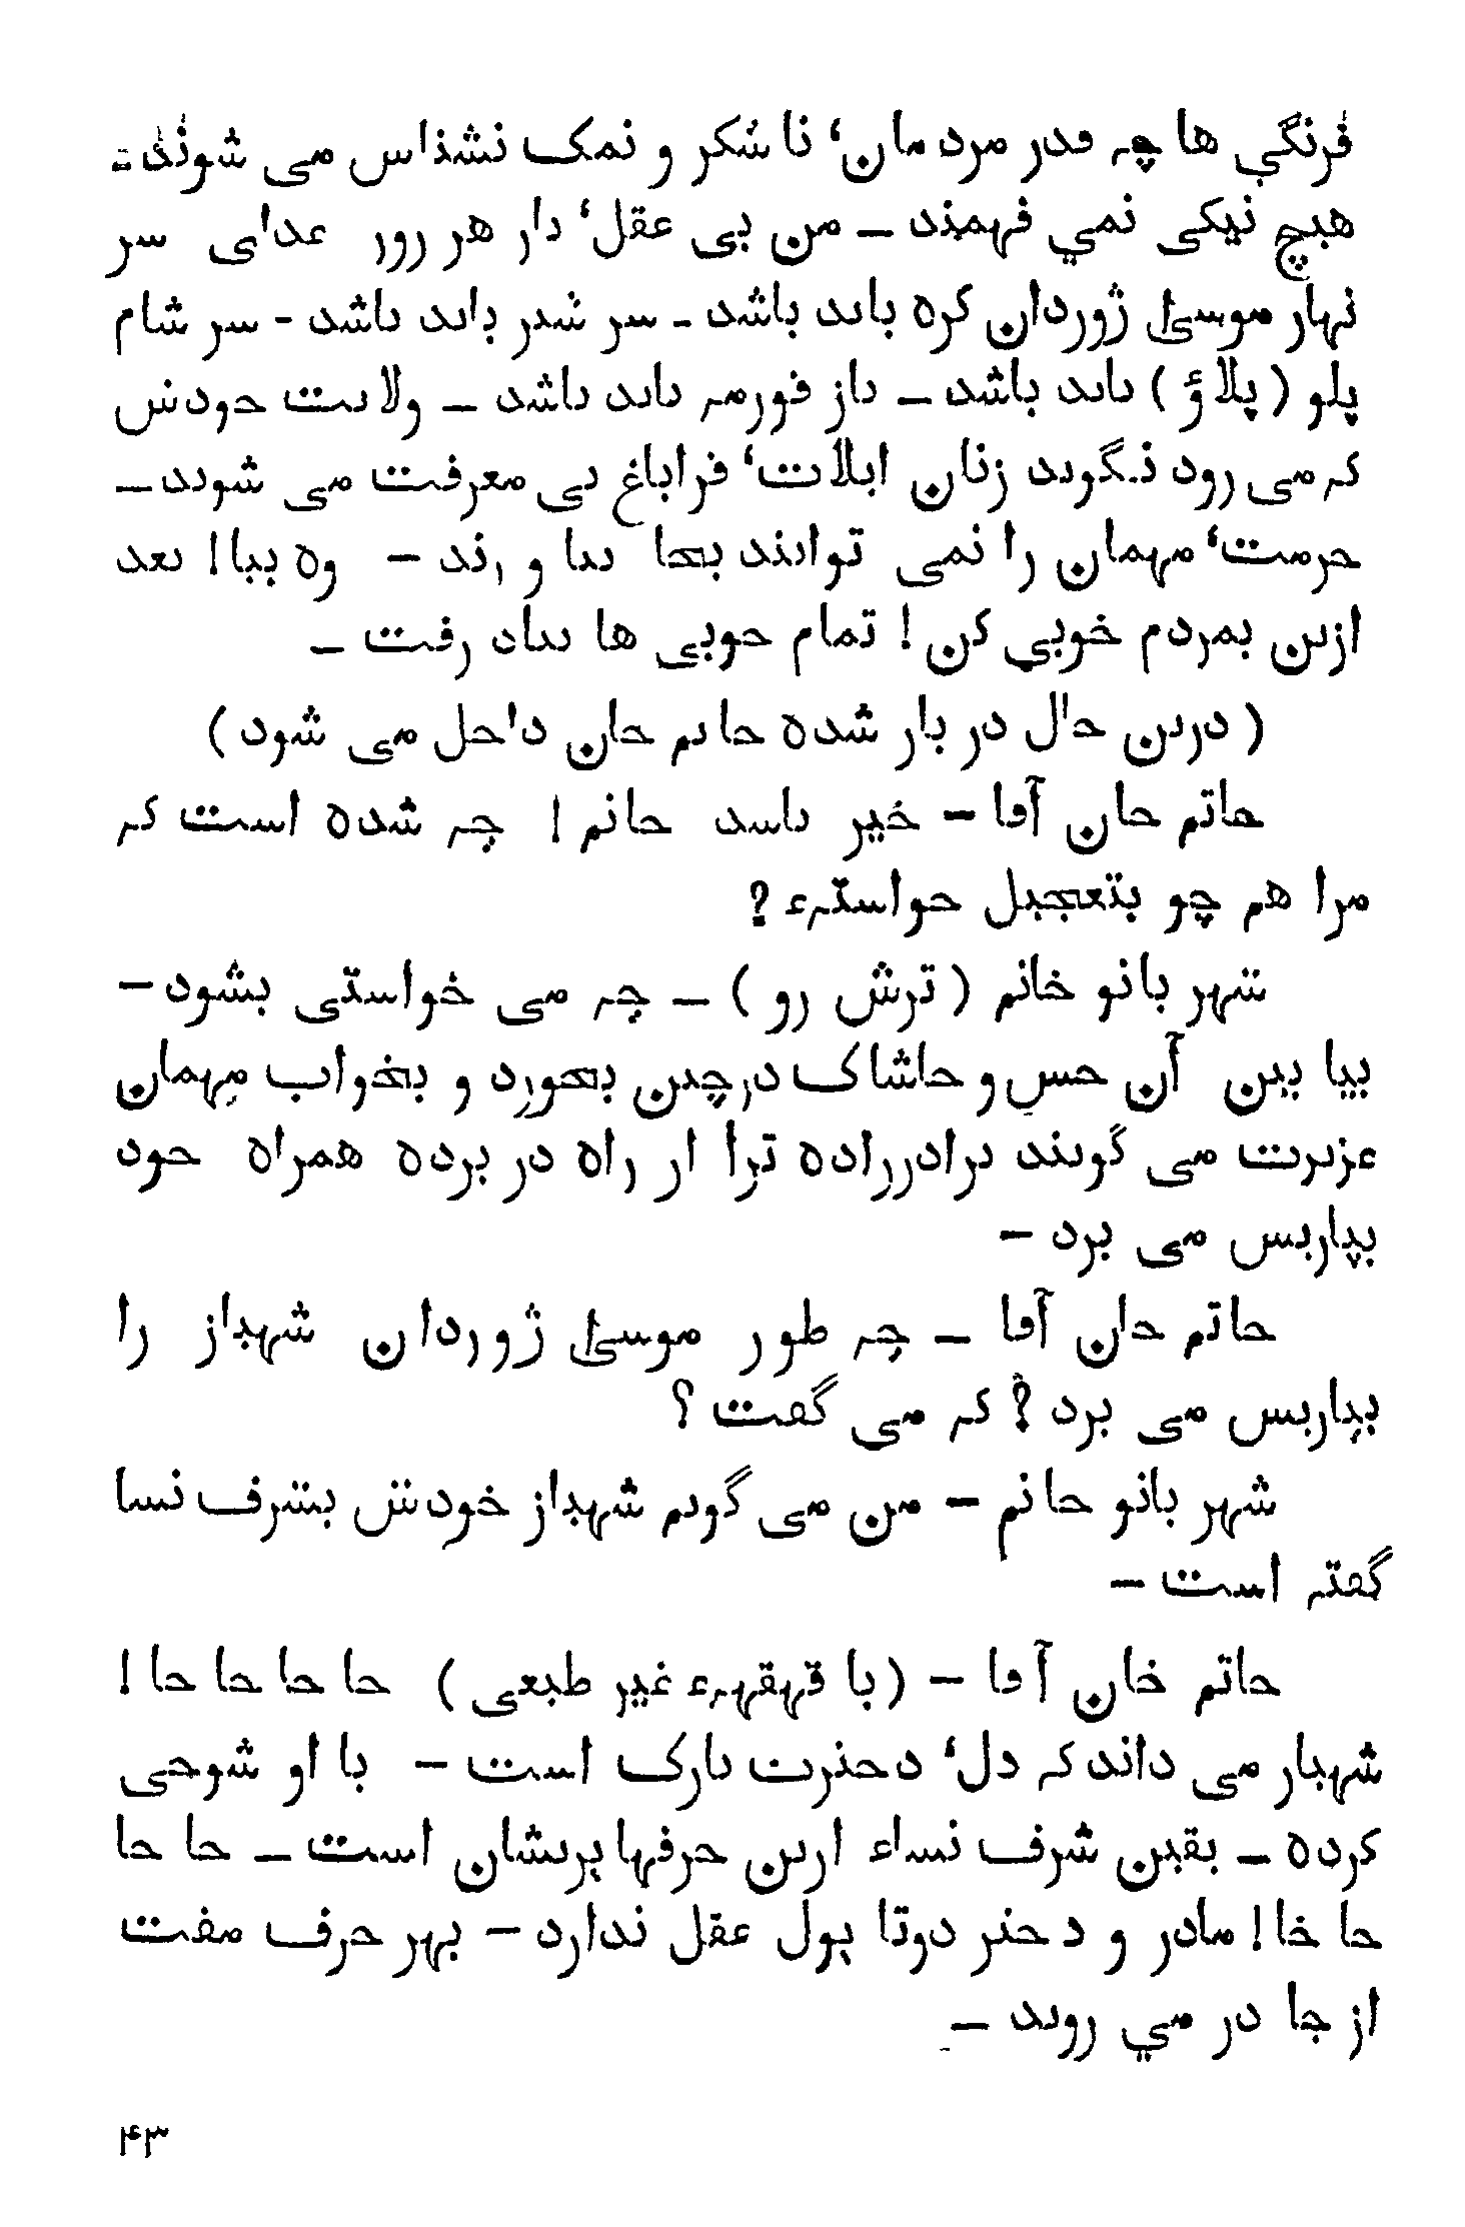 فرنگی ها چه قدر مردمان، ناشکر و نمک نشناس می شوند -
هیچ نیکی نمی فهمند - من بی عقل، دار هر روز غدای سر
نهار موسیٰ ژوردان کره باید باشد - سر شدر باید باشد - سر شام
پلو ( پلاؤ ) باید باشد - باز قورمه باید باشد - ولایت خودش
که می رود نگوید زنان ایلات، قراباغ بی معرفت می شوند -
حرمت، مهمان را نمی توانند بجا بیا و رند - وه بیا! بعد
ازین بمردم خوبی کن! تمام خوبی ها بباد رفت -
( درین حال در باز شده حاتم خان داخل می شود )
حاتم خان آقا - خیر باشد خانم! چه شده است که
مرا هم چو بتعجیل خواستهء ?
شهر بانو خانم ( ترش رو ) - چه می خواستی بشود -
بیا ببین آن خس و خاشاک در چین بخورد و بخواب مهمان
عزیزت می گویند برادرزاده ترا از راه در برده همراه خود
بپاریس می برد -
حاتم خان آقا - چه طور موسیٰ ژوردان شهباز را
بپاریس می برد ? که می گفت ؟
شهر بانو خانم - من می گویم شهباز خودش بشرف نسا
گفته است -
حاتم خان آقا - ( با قهقههء غیر طبعی ) حا حا حا حا!
شهباز می داند که دل، دخترت نازک است - با او شوخی
کرده - یقین شرف نساء ازین حرفها پریشان است - حا حا
حا خا! مادر و دختر دوتا پول عقل ندارد - بهر حرف مفت
از جا در می روند -
۴۳